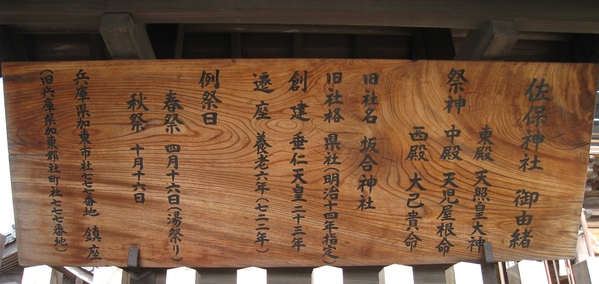 佐保神社 御由緒
祭神
東殿 天照皇大神
中殿 天児屋根命
西殿 大己貴命
旧社名 坂合神社
旧社格 県社(明治十四年指定)
創建 垂仁天皇二十三年
遷座 養老六年(七二二年)
例祭日
春祭 四月十六日(湯祭り)
秋祭 十月十六日
兵庫県加東市社七七七番地 鎮座
(旧兵庫県加東郡社町社七七七番地)